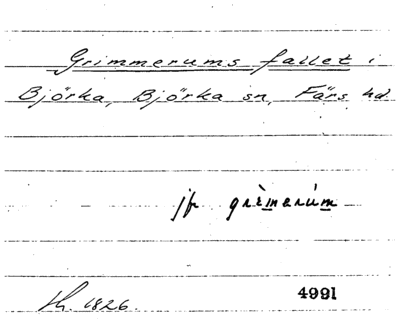 Grimmerums fallet i
Björka, Björka sn, Färs hd
jfr grimerùm
th. 1826.
4991